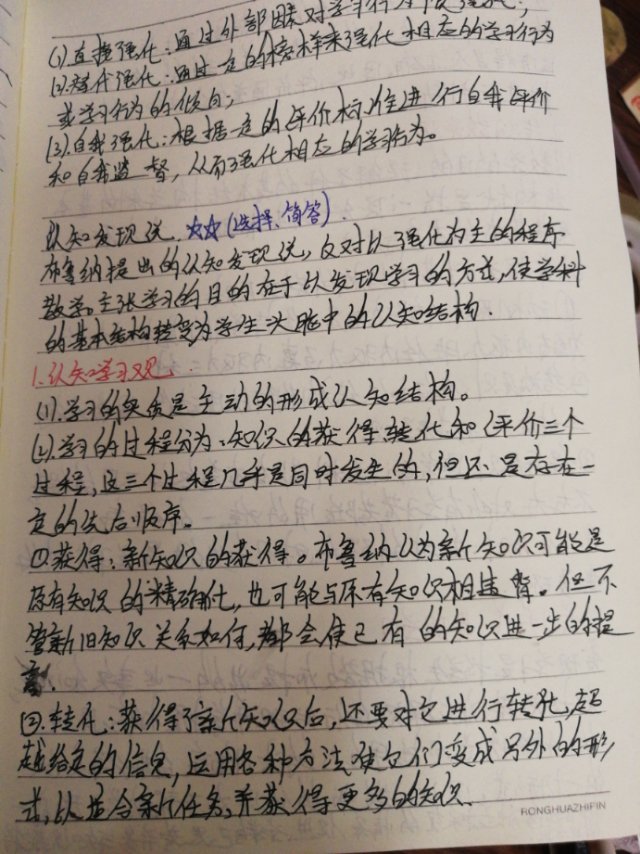 (1).直接强化：通过外部因素对学习行为
(2).替代强化：通过一定的榜样来强化相应的学习行为
或学习行为的倾向；
(3).自我强化：根据一定的评价标准进行自我评价
和自我监督，从而强化相应的学习行为。
认知发现说.☆☆(选择、简答).
布鲁纳提出的认知发现说，反对以强化为主的程序
教学。主张学习的目的在于以发现学习的方式，使学科
的基本结构转变为学生头脑中的认知结构.
1.认知学习观.
(1).学习的实质是主动的形成认知结构。
(2).学习的过程分为:知识的获得转化和评价三个
过程，这三个过程几乎是同时发生的，但还是存在一
定的先后顺序。
①获得：新知识的获得。布鲁纳认为新知识可能是
原有知识的精确化，也可能与原有知识相违背。但不
管新旧知识关系如何，都会使已有的知识进一步的提
高.
②.转化：获得了新知识后，还要对它进行转化，超
越给定的信息，运用各种方法使它们变成另外的形
式，以适合新任务，并获得更多的知识.
RONGHUAZHIPIN